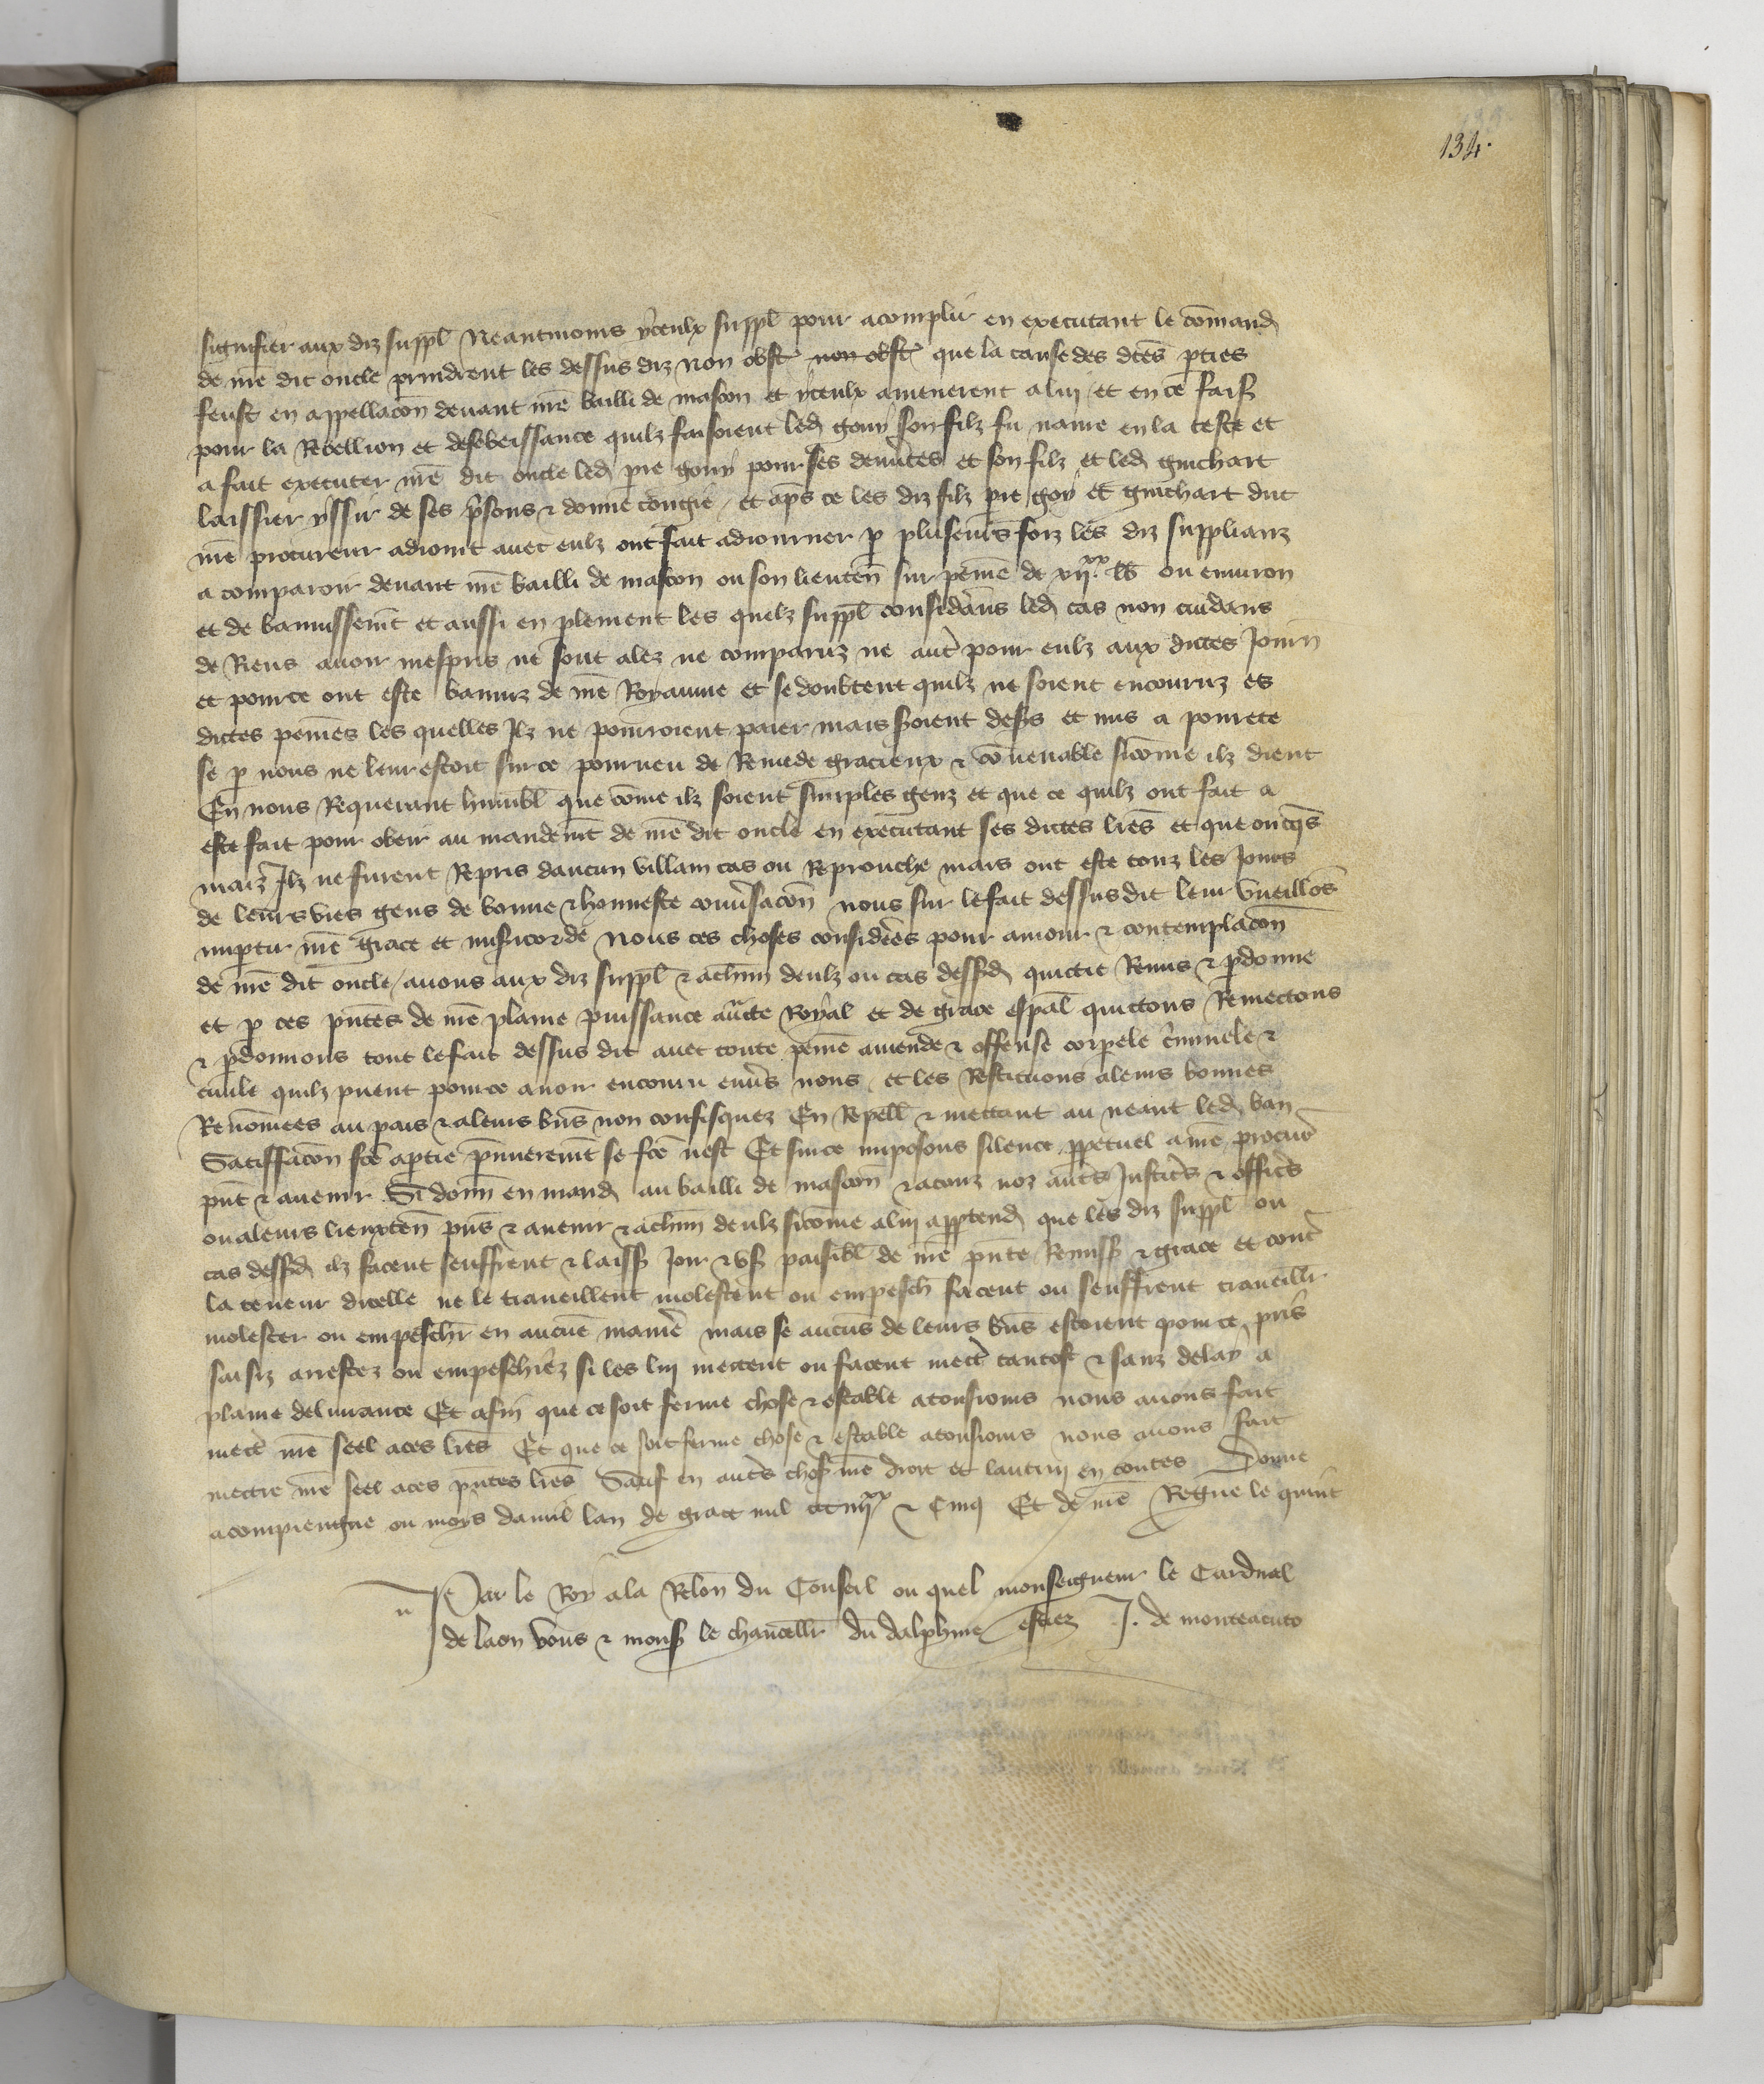 134.
signifier aux diz suppl Neantmoins yceulx suppl pour acomplir en executant le comand
de nre dit oncle prindrent les dessus diz non obst non obst que la cause des dces pties
feust en appellacon devant nre bailli de mascon et yceulx amenerent a luy / et en ce fais
pour la Rebellion et desobeissance quilz faisoient led gouy son filz fu navre en la teste et
a fait executer nre dit oncle led pre gouy pour ses demerites et son filz et led guichart
laissier yssir de ses prisons & donne congie / et aps ce les diz filz pre goy et guichart dut
nre procureur adioint avec eulz ont fait adiourner p pluseurs foiz les diz supplianz
a comparoir devant nre bailli de mascon ou son lieuten sur peine de xii xx lb ou environ
et de bannissemt et aussi en plement les quelz suppl considerans led cas non cuidans
de Riens avoir mespris ne sont alez ne comparuz ne autre pour eulz aux dictes Journ
et pource ont este banniz de nre Royaume et se doubtent quilz ne soient encouruz es
dictes peines les quelles Ilz ne pourroient paier mais seroient desers et mis a povrete
se p nous ne leur estoit sur ce pourveu de Remede gracieux & convenable sicome ilz dient
En nous Requerant humbl que come ilz soient simples genz et que ce quilz ont fait a
este fait pour obeir au mandemt de nre dit oncle en executant ses dictes lres et que oncqs
maiz Ilz ne furent Repris daucun villain cas ou Reprouche mais ont este touz les Jours
de leurs vies gens de bonne & honneste conversacon nous sur le fait dessus dit leur vueillons
impartir nre grace et misericorde Nous ces choses considerees pour amour & contemplacon
de nre dit oncle / avons aux diz suppl & achun deulz ou cas dessd quictie Remis & pdonne
et p ces pntes de nre plaine puissance aucte Royal et de grace espal quictons Remectons
& pdonnons tout le fait dessus dit avec toute peine amende & offense corporele criminele &
civile quilz puent pource avoir encouru envers nous / et les Restituons a leurs bonnes
Renomees au pais & a leurs biens non confisquez En Repell & mectant au neant led ban
Satisfacon fce a ptie premierement se fce nest Et sur ce imposons silence ppetuel a nre procur
pnt & avenir Si donn en mand au bailli de mascon & a touz noz autres Justiciers & officiers
ou a leurs lieuxten pns & avenir & achun deulz sicome a luy apptend que les diz suppl ou
cas dessd ilz facent seuffrent & laiss Joir & us paisibl de nre pnte Remiss & grace et contre
la teneur dicelle ne le traveillent molestent ou empesch facent ou seuffrent traveillr
molester ou empeschr en aucune maniere mais se aucuns de leurs biens estoient pource pris
saisiz arrestez ou empeschiez si les luy mectent ou facent mectre tantost & sanz delay a
plaine delivrance Et afin que ce soit ferme chose & estable a tousiours nous avons fait
mectre nre seel a ces lres Et que ce soit ferme chose & estable a tousiours nous avons fait
mectre nre seel a ces pntes lres Sauf en autres choses nre droit et lautruy en toutes Donne
a compiengne ou moys davril lan de grace mil ccc iiii xx & Cinq Et de nre Regne le quint
Par le Roy a la Relon du Conseil ou quel monseigneur le Cardinal
de laon vous & mons le chancellr du dalphine estiez J. de monteacuto